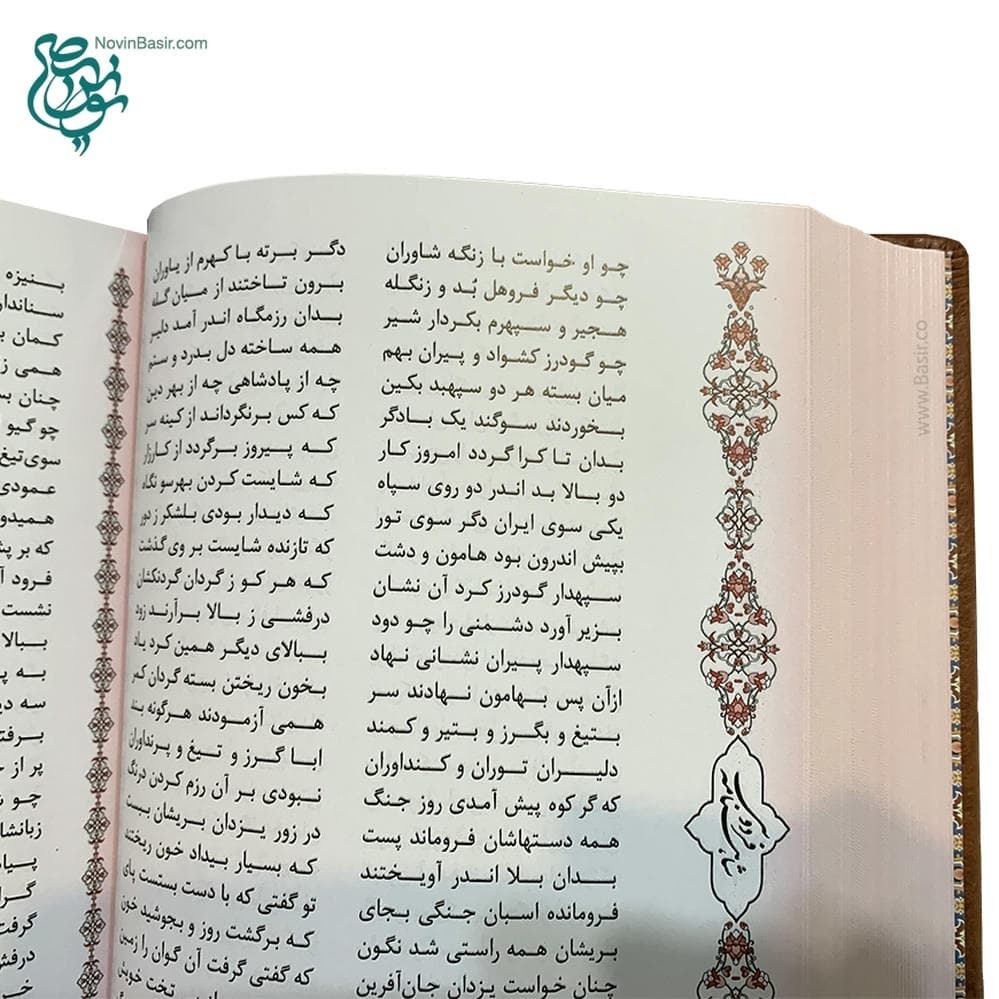 NovinBasir.com
www.Basir.co
چو او خواست با زنگه شاوران دگر برته با کهرم از یاوران
چو دیگر فروهل بُد و زنگله برون تاختند از میان گله
هجیر و سپهرم بکردار شیر بدان رزمگاه اندر آمد دلیر
چو گودرز کشواد و پیران بهم همه ساخته دل بدرد و ستم
میان بسته هر دو سپهبد بکین چه از پادشاهی چه از بهر دین
بخوردند سوگند یک بادگر که کس برنگرداند از کینه سر
بدان تا کرا گردد امروز کار که پیروز برگردد از کارزار
دو بالا بد اندر دو روی سپاه که شایست کردن بهرسو نگاه
یکی سوی ایران دگر سوی تور که دیدار بودی بلشکر ز دور
بپیش اندرون بود هامون و دشت که تازنده شایست بر وی گذشت
سپهدار گودرز کرد آن نشان که هر کو ز گردان گردنکشان
بزیر آورد دشمنی را چو دود درفشی ز بالا برآرند زود
سپهدار پیران نشانی نهاد ببالای دیگر همین کرد یاد
ازآن پس بهامون نهادند سر بخون ریختن بسته گردان کمر
بتیغ و بگرز و بتیر و کمند همی آزمودند هرگونه بند
دلیران توران و کنداوران ابا گرز و تیغ و پرنداوران
که گر کوه پیش آمدی روز جنگ نبودی بر آن رزم کردن درنگ
همه دستهاشان فروماند پست در زور یزدان بریشان ببست
بدان بلا اندر آویختند که بسیار بیداد خون ریختند
فرومانده اسبان جنگی بجای تو گفتی که با دست بستست پای
بریشان همه راستی شد نگون که برگشت روز و بجوشید خون
چنان خواست یزدان جان‌آفرین که گفتی گرفت آن گوان را زمین
تخت خویش
شاهنامه فردوسی
بنیزه
کمان
همی
چنان
چو گیو
سوی تیغ
عمودی
که بر
فرود
نشست
ببالا
سه
پر از
چو
گرفت